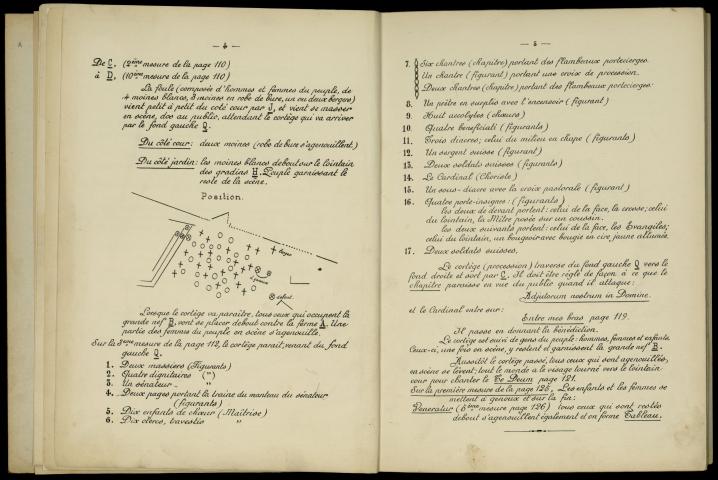 — 4 —
De C. (2ème mesure de la page 110)
à D. (10ème mesure de la page 110)
La foule (composée d'hommes et femmes du peuple, de
4 moines blancs, 8 moines en robe de bure, un ou deux bergers)
vient petit à petit du coté cour par J, et vient se masser
en scène, dos au public, attendant le cortège qui va arriver
par le fond gauche Q.
Du côté cour: deux moines (robe de bure s'agenouillent)
Du côté jardin: les moines blancs debout sur le lointain
des gradins H. Peuple garnissant le
reste de la scène.
Position.
Lorsque le cortège va paraître, tous ceux qui occupent la
grande nef B, vont se placer debout contre la ferme A. Une
partie des femmes du peuple en scène s'agenouille.
Sur la 3ème mesure de la page 112, le cortège paraît, venant du fond
gauche Q.
1. Deux massiers (Figurants)
2. Quatre dignitaires (")
3. Un sénateur - "
4. Deux pages portant la traîne du manteau du sénateur
(figurants)
5. Dix enfants de chœur (Maîtrise)
6. Dix clercs, travestis "
— 5 —
7. Six chantres (chapitre) portant des flambeaux porte cierges.
Un chantre (figurant) portant une croix de procession.
Deux chantres (chapitre) portant des flambeaux porte cierges.
8. Un prêtre en surplis avec l'encensoir (figurant)
9. Huit accolytes (chœurs)
10. Quatre beneficiati (figurants)
11. Trois diacres; celui du milieu en chape (figurants)
12. Un sergent suisse (figurant)
13. Deux soldats suisses (figurants)
14. Le Cardinal (Choriste)
15. Un sous-diacre avec la croix pastorale (figurant)
16. Quatre porte-insignes: (figurants)
les deux de devant portent: celui de la face, la crosse; celui
du lointain, la Mitre posée sur un coussin.
les deux suivants portent: celui de la face, les Evangiles;
celui du lointain, un bougeoir avec bougie en cire jaune allumée.
17. Deux soldats suisses.
Le cortège (procession) traverse du fond gauche Q vers le
fond droite et sort par C. Il doit être réglé de façon à ce que le
chapitre paraisse en vue du public quand il attaque:
Adjutorum nostrum in Domine.
et le Cardinal entre sur:
Entre mes bras page 119.
Il passe en donnant la bénédiction.
Le cortège est suivi de gens du peuple: hommes, femmes et enfants.
Ceux-ci, une fois en scène, y restent et garnissent la grande nef B.
Aussitôt le cortège passé, tous ceux qui sont agenouillés,
en scène se lèvent; tout le monde a le visage tourné vers le lointain
cour pour chanter le Te Deum page 121.
Sur la première mesure de la page 126. Les enfants et les femmes se
mettent à genoux et sur la fin:
Veneratur (6ème mesure page 126) tous ceux qui sont restés
debout s'agenouillent également et on forme Tableau.